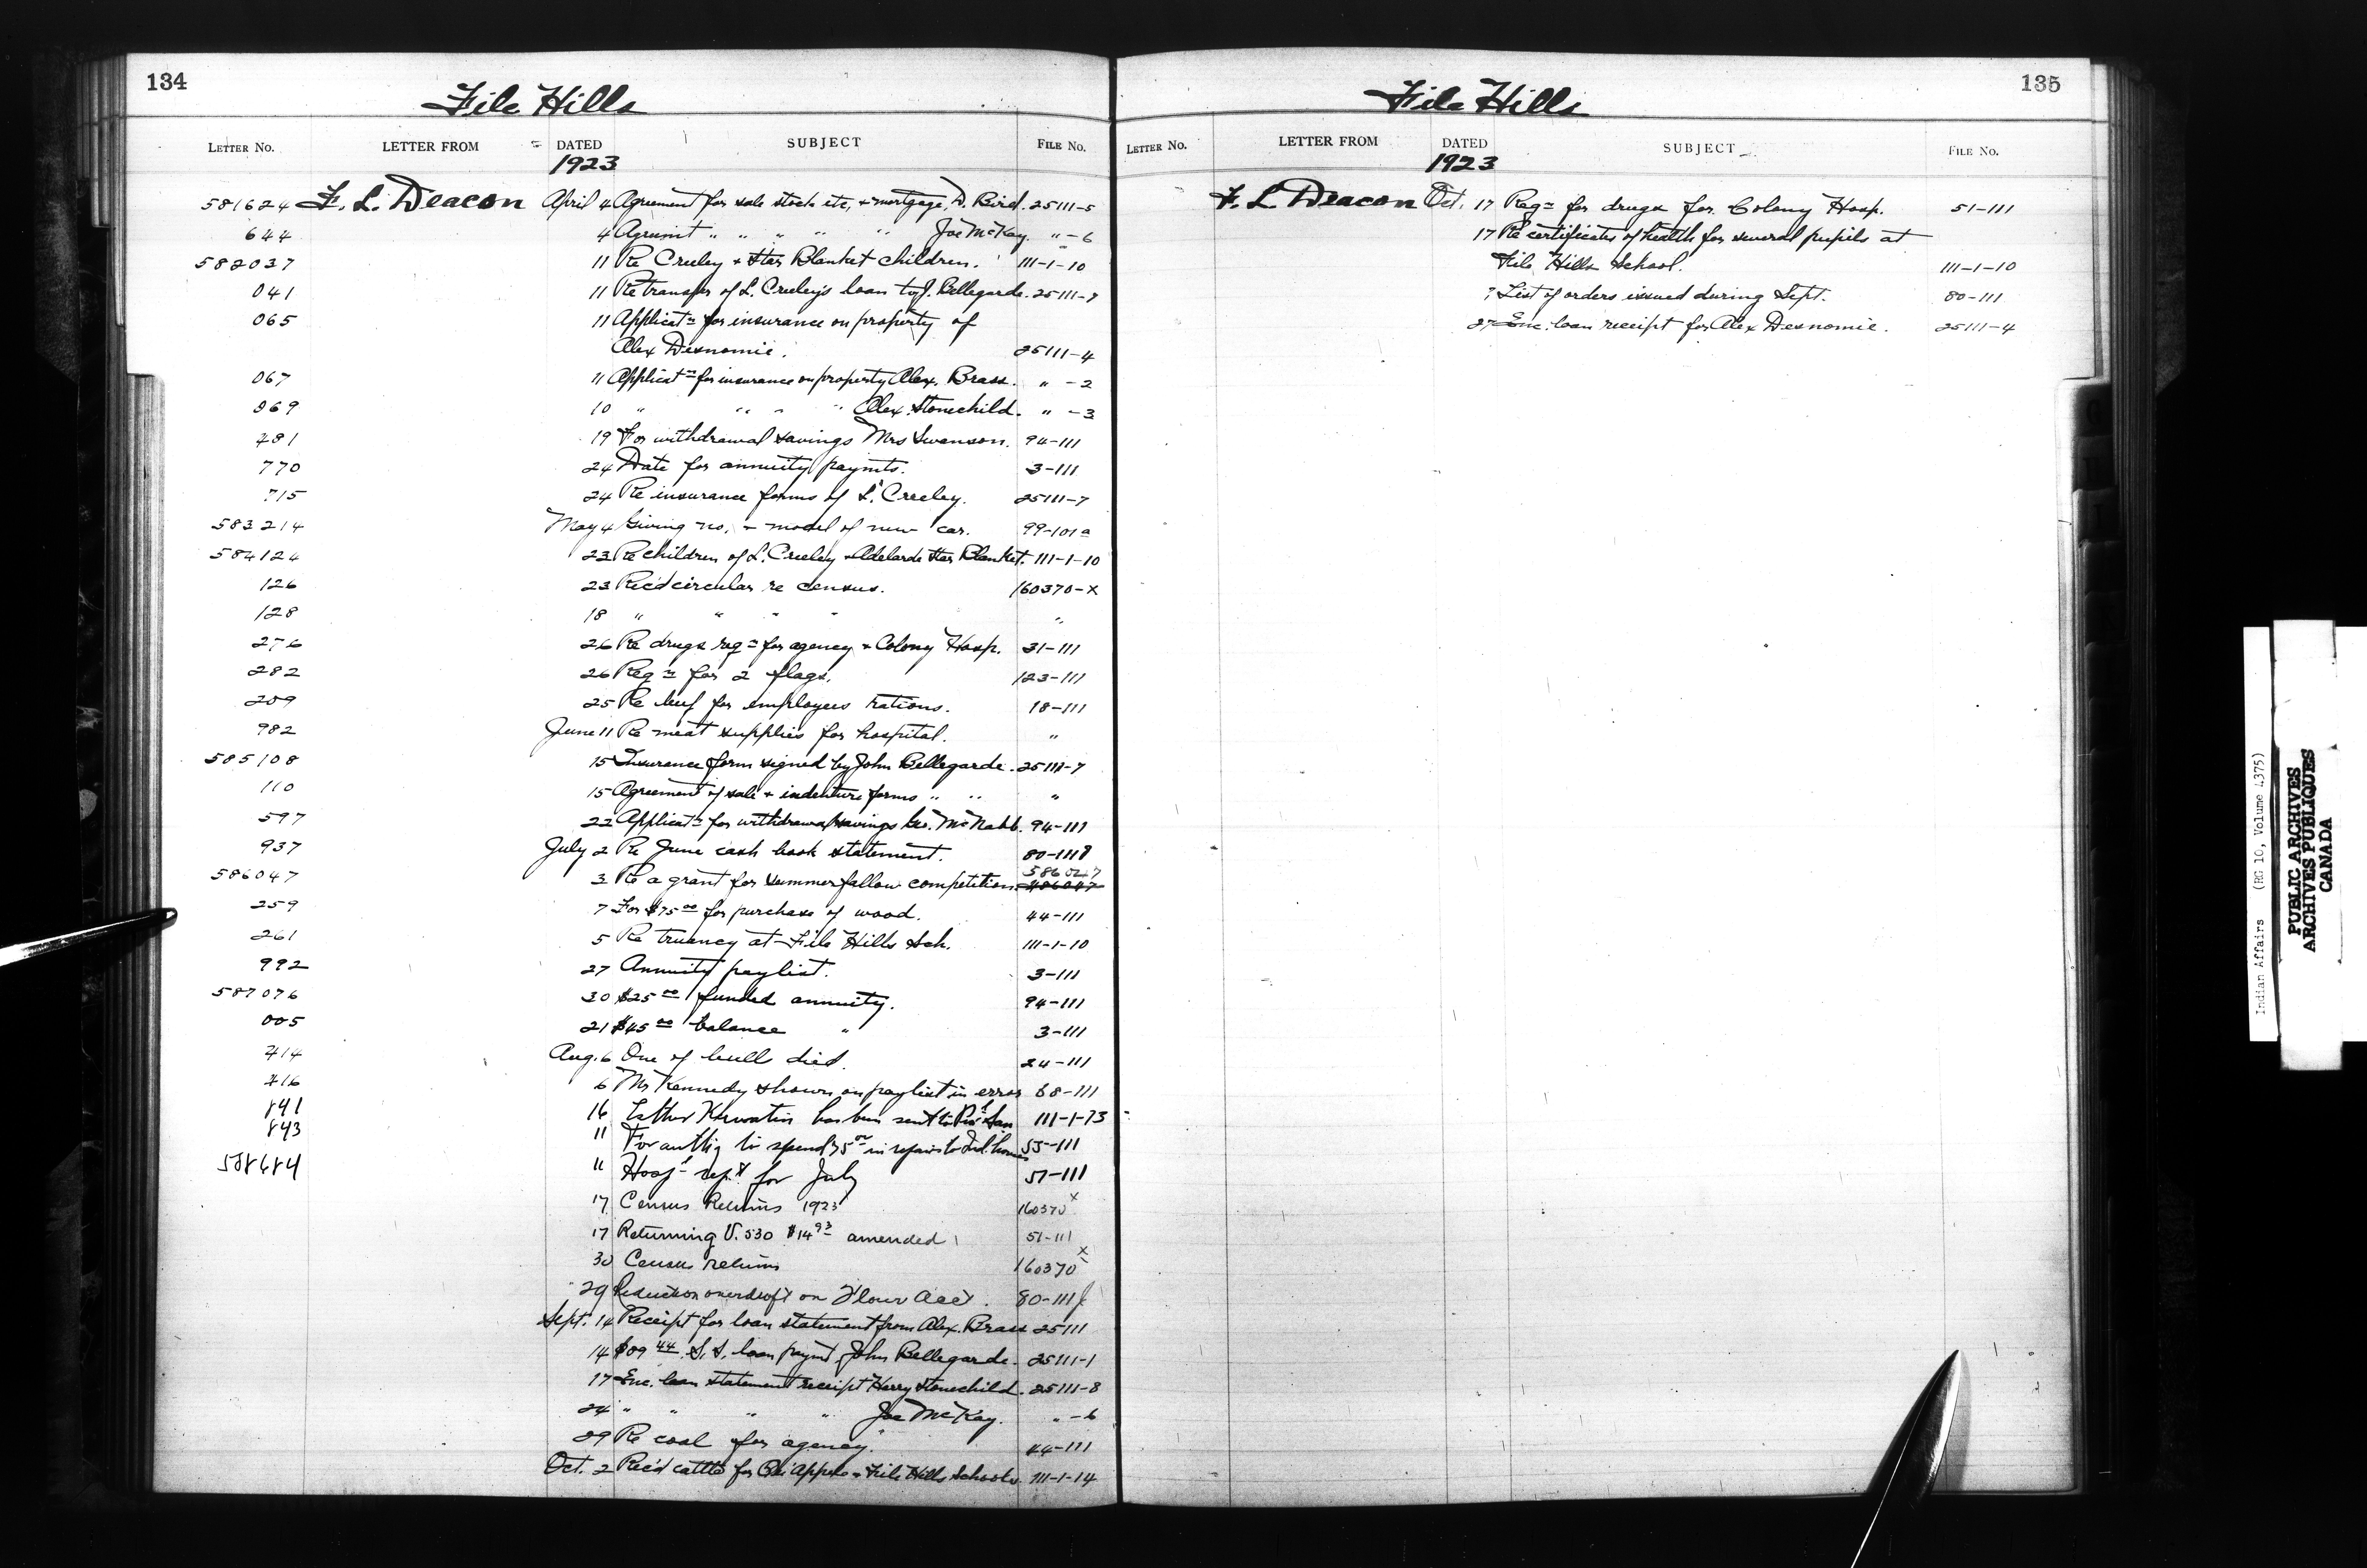 134
File Hills
LETTER No. LETTER FROM DATED SUBJECT FILE No.
1923
581624 F. L. Deacon April 4 Agreement for sale stock etc, + mortgage, D. Bird. 25111-5
644 4 Agrumt " " " " " Joe McKay. " -6
582037 11 Re Creeley + Star Blanket children. 111-1-10
041 11 Re transfer of L. Creeley's loan to J. Bellegarde. 25111-7
065 11 Applicatn for insurance on property of
Alex Desnomie. 25111-4
067 11 Applicatn for insurance on property Alex. Brass. " -2
069 10 " " " " Alex. Stonechild. " -3
481 19 For withdrawal savings Mrs Swanson. 94-111
770 24 Date for annuity paymts. 3-111
715 24 Re insurance forms of L. Creeley. 25111-7
583214 May 4 Giving no. + model of new car. 99-101a
584124 23 Re children of L. Creeley + Adelarde Star Blanket. 111-1-10
126 23 Rec'd circular re census. 160370-x
128 18 " " " " "
276 26 Re drugs reqn for agency + Colony Hosp. 31-111
282 26 Reqn for 2 flags. 123-111
259 25 Re beef for employees rations. 18-111
982 June 11 Re meat supplies for hospital. "
585108 15 Insurance form signed by John Bellegarde. 25111-7
110 15 Agreement of sale + indenture forms " " "
597 22 Applicatn for withdrawal savings Geo. McNabb. 94-111
937 July 2 Re June cash book statement. 80-111
586047 3 Re a grant for summerfallow competition. 586047
259 7 For $75.00 for purchase of wood. 44-111
261 5 Re truancy at File Hills Sch. 111-1-10
992 27 Annuity paylist. 3-111
587076 30 $25.00 funded annuity. 94-111
005 21 $45.00 balance " 3-111
414 Aug. 6 One of bull died. 24-111
416 6 Mr Kennedy shown on paylist in error 68-111
841 16 Esther Keewatin has been sent to San 111-1-13
843 11 For auth'y to spend 75.00 in repairs to Ind. homes 55-111
588684 11 Hosp'l rep't for July 51-111
17 Census Returns 1923 160370x
17 Returning V. 530 $14.93 amended 51-111
30 Census returns 160370x
29 Reduction overdraft on Flour Acct. 80-111
Sept. 14 Receipt for loan statement from Alex. Brass 25111
14 $89.44 S.S. loan paymt John Bellegarde. 25111-1
17 Enc. loan statement receipt Harry Stonechild. 25111-8
24 " " " " Joe McKay. " -6
29 Re coal for agency. 44-111
Oct. 2 Rec'd cattle for Qu'Appelle + File Hills Schools. 111-1-14
135
File Hills
LETTER No. LETTER FROM DATED SUBJECT FILE No.
1923
F. L. Deacon Oct. 17 Reqn for drugs for Colony Hosp. 51-111
17 Re certificates of health for several pupils at
File Hills School. 111-1-10
? List of orders issued during Sept. 80-111
27 Enc. loan receipt for Alex Desnomie. 25111-4
Indian Affairs (RG 10, Volume 4375)
PUBLIC ARCHIVES
ARCHIVES PUBLIQUES
CANADA